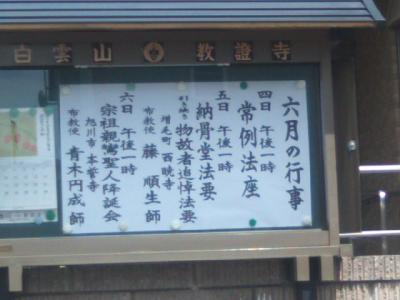 白雲山 教證寺
六月の行事
四日 午後一時
常例法座
五日 午後一時
納骨堂法要
物故者追悼法要
増毛町 西暁寺
布教使 藤 順生師
六日 午後一時
宗祖親鸞聖人降誕会
旭川市 本誓寺
布教使 青木円成師